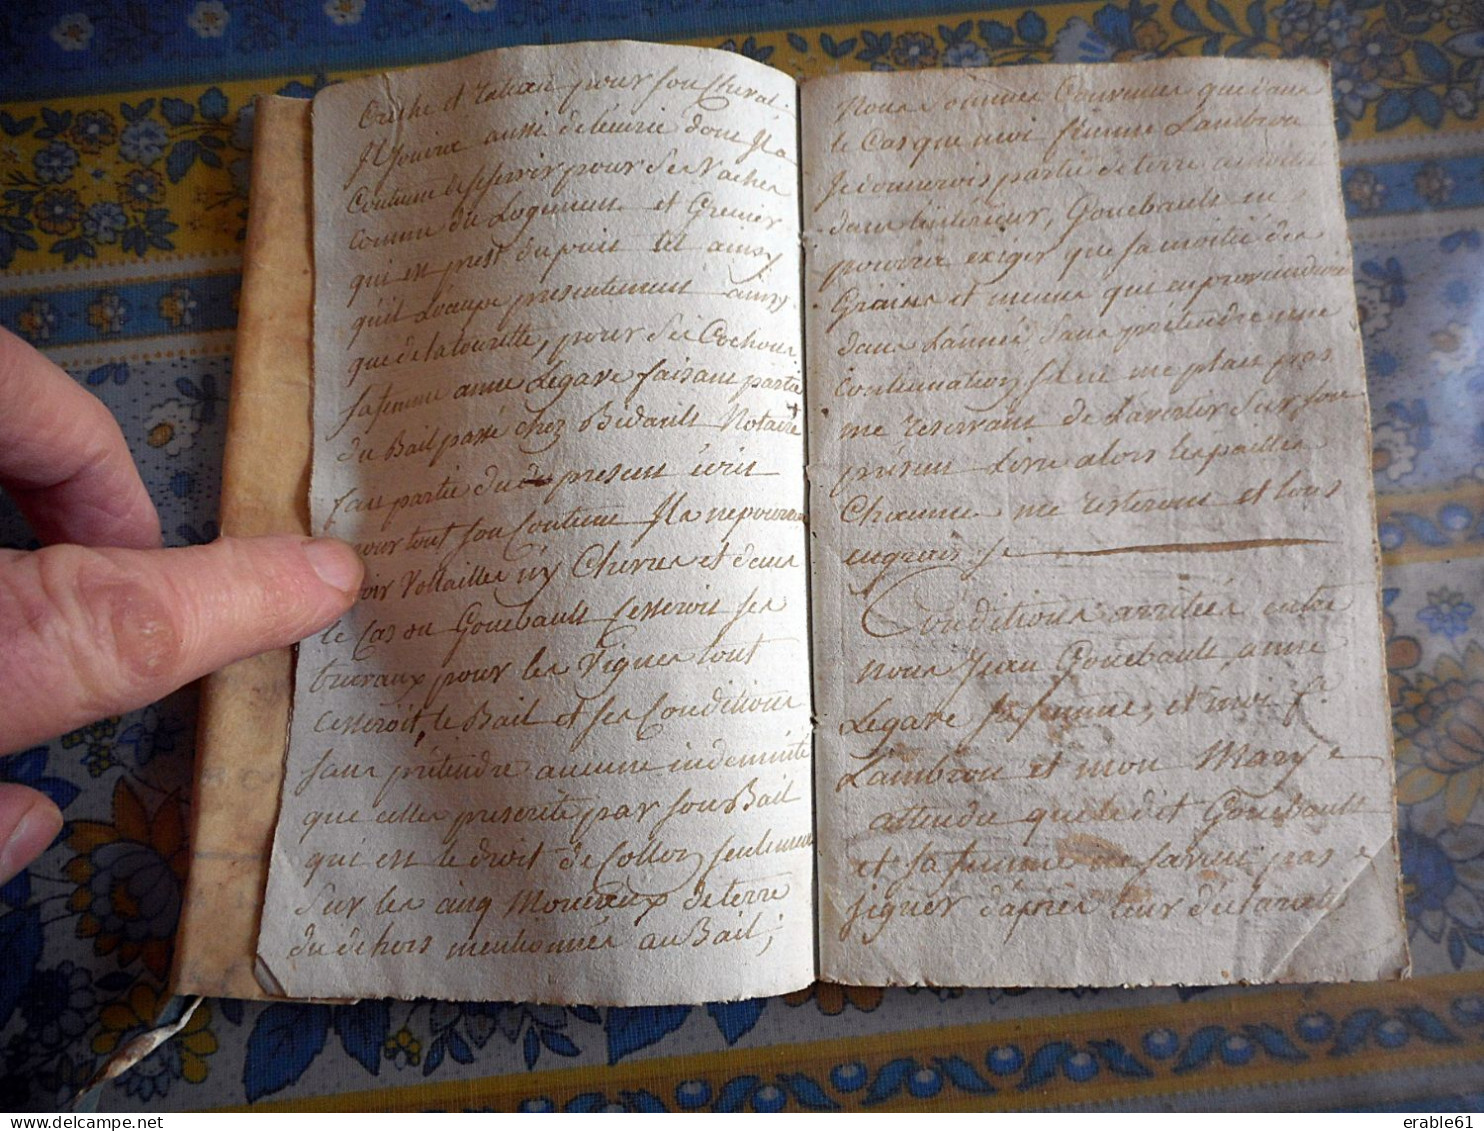 Creche et Ratelier pour son Cheval.
Il Jouira aussi de leurie dont Il a
Coutume de servir pour Ses Vaches
comme du Logement et Grenier
qui en prest du puits tel ainsy
qu'il Locupe presentement ainsy
que de la tourette, pour Ses Cochons
sa femme anne Legare faisant partie
du Bail passé chez Bidault Notaire
fau partie du present écrit
pour tout son Contenu Il a ne pourra
avoir Vollailles ny Chevres et dans
le Cas ou Gouebault Cesseroit ses
travaux pour les Vignes tout
Cesseroit, le Bail et ses Conditions
sans prétendre aucune indemnité
que celles prescrite par son Bail
qui est le droit de Collon seulement
Sur les cinq Morceaux de terre
du dehors mentionnés au Bail;
Nous Sommes Convenus que dans
le Cas que moi femme Lambron
Je donnerois partie de terre a moitié
dans l'intérieur, Gouebault en
pourrie exiger que sa moitié des
Grains et menus qui en proviendroient
dans L'année, Sans prétendre une
Continuation Si il ne me plait pas
me réservant de L'avertir Sur son
présent Livre alors les pailles
Chaume me resteront et tous
engrais
Conditions arrêtées entre
nous Jean Gouebault, anne
Legare sa femme, et moi fe
Lambron et mon Mary
attendu que le dit Gouebault
et sa femme ne savent pas
signer d'après leur déclaration
erable61